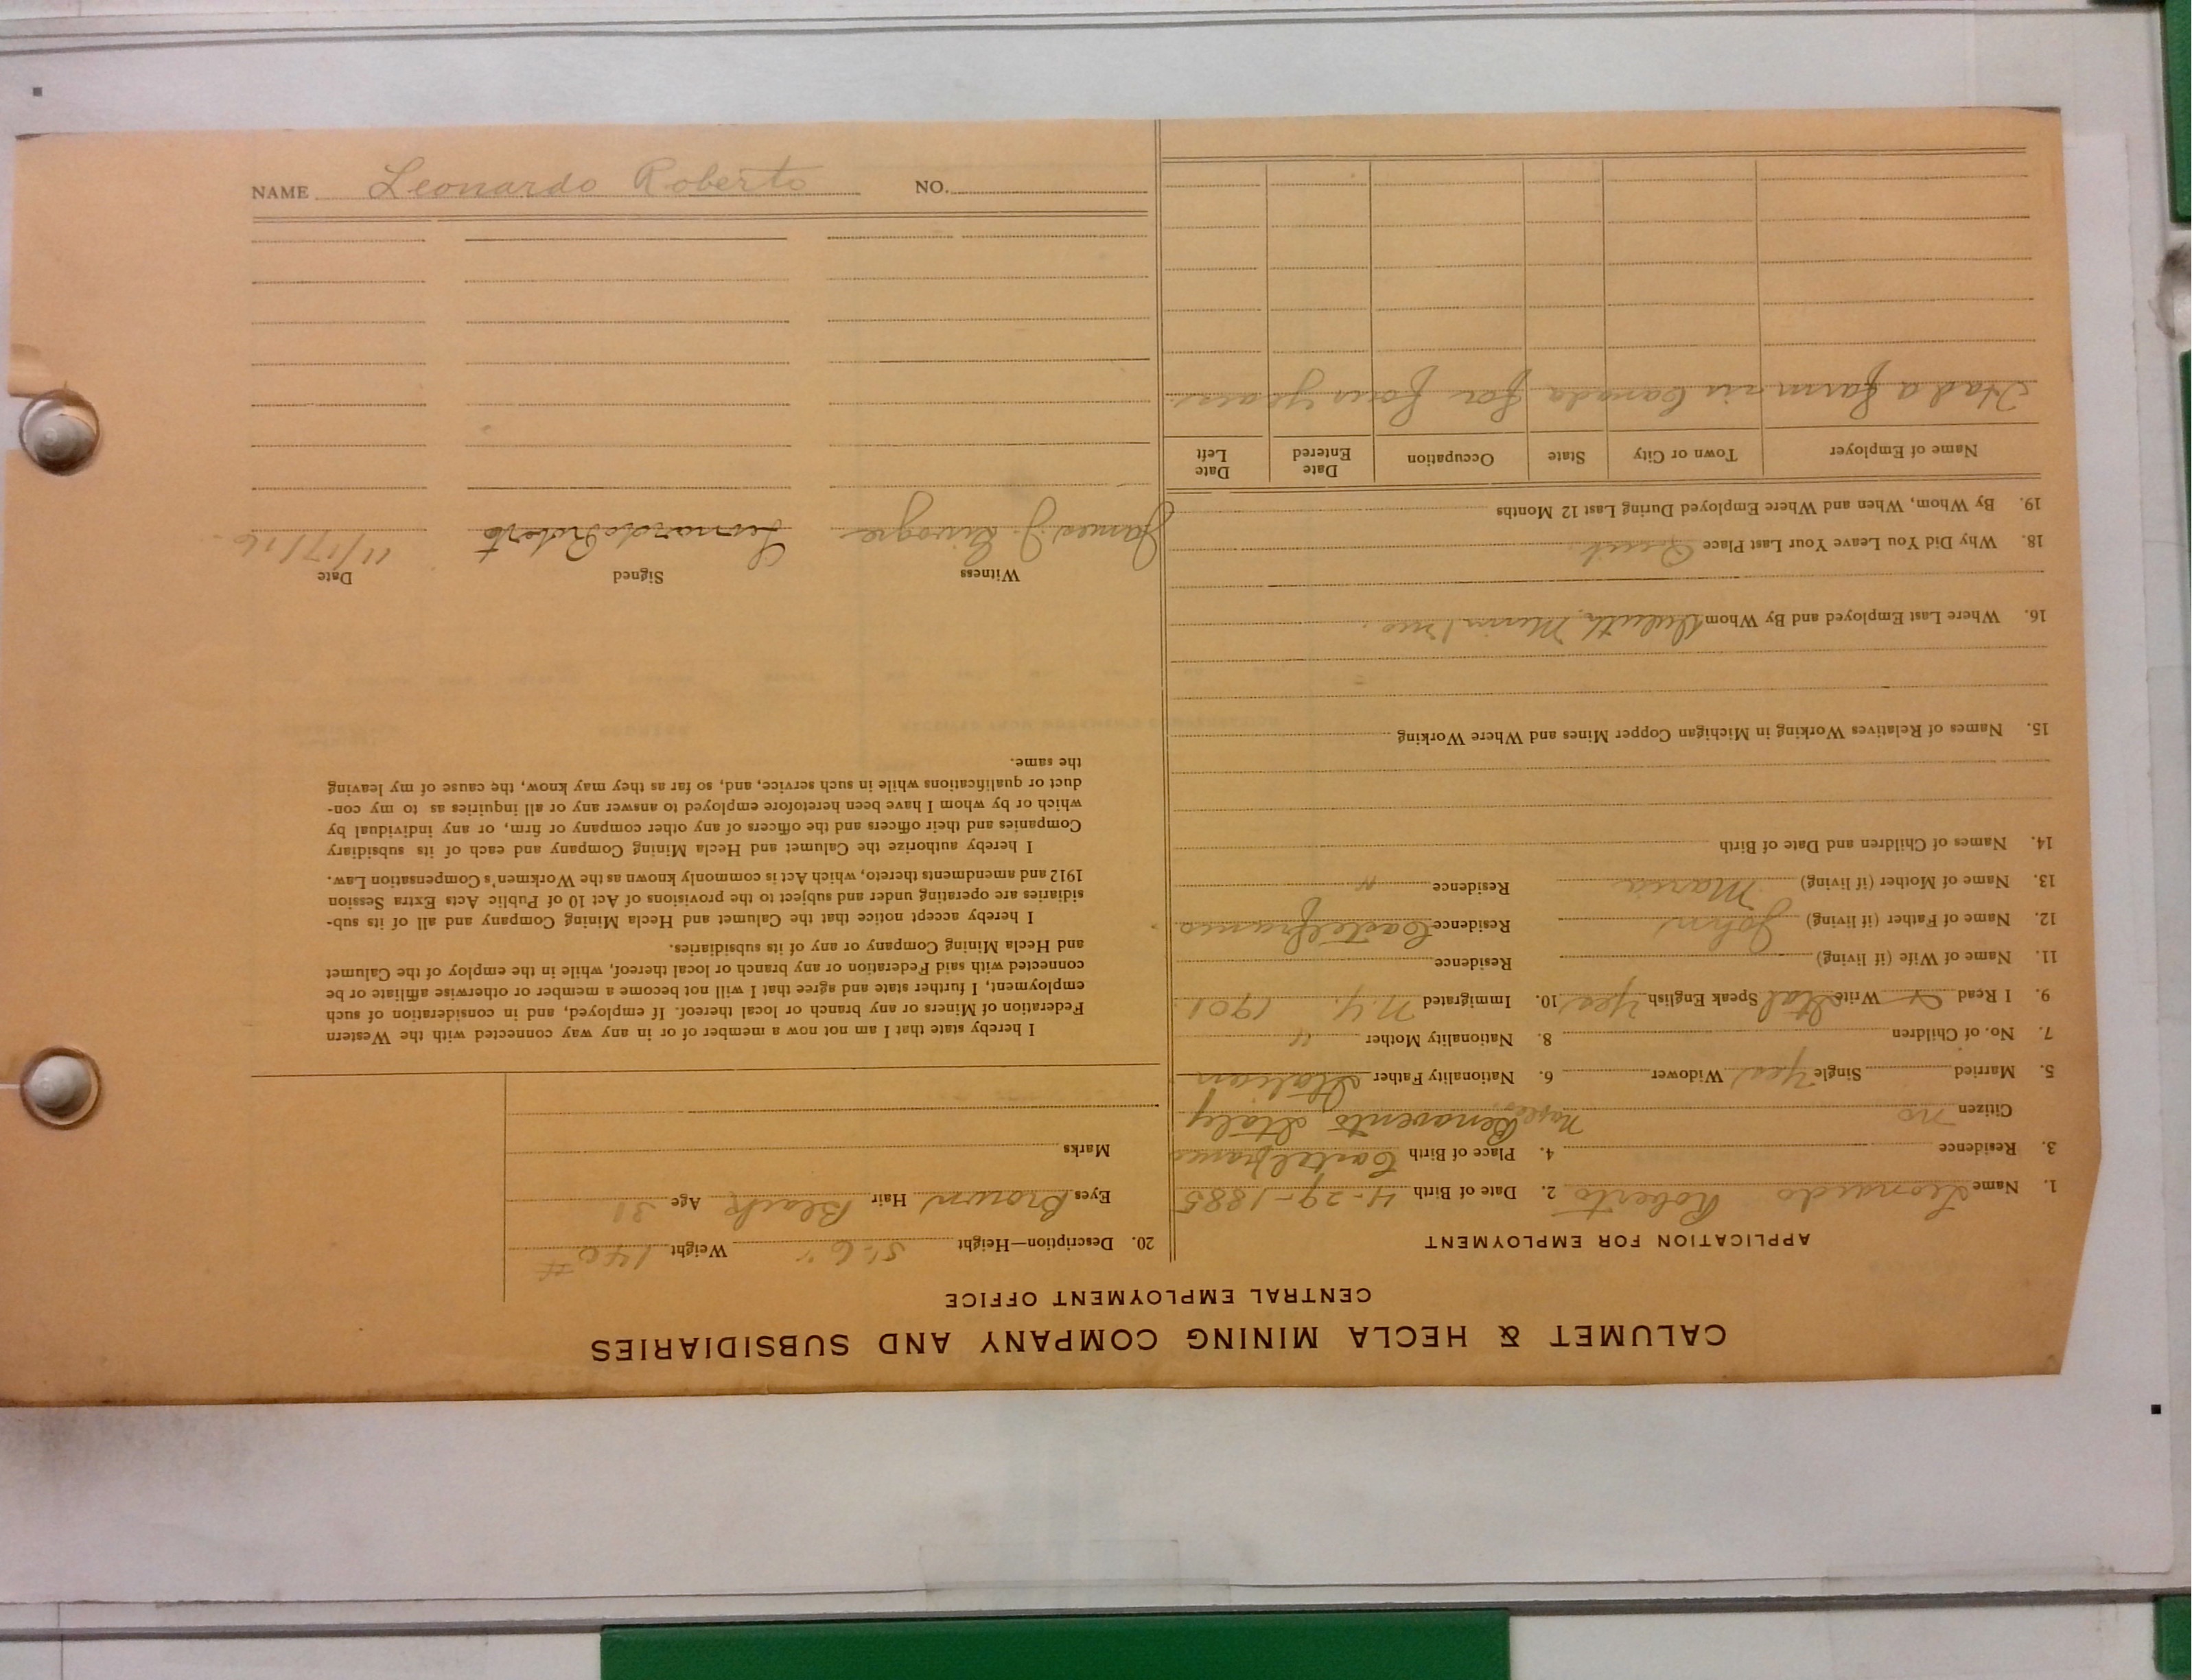 CALUMET & HECLA MINING COMPANY AND SUBSIDIARIES
CENTRAL EMPLOYMENT OFFICE
APPLICATION FOR EMPLOYMENT
1. Name Leonardo Roberto 2. Date of Birth 4-29-1885
3. Residence 4. Place of Birth Castelfranco
Citizen no Naples, Benavento Italy
5. Married Single Yes Widower 6. Nationality Father Italian
7. No. of Children 8. Nationality Mother "
9. I Read & Write Ital Speak English Yes 10. Immigrated N.Y. 1901
11. Name of Wife (if living) Residence
12. Name of Father (if living) John Residence Castelfranco
13. Name of Mother (if living) Maria Residence "
14. Names of Children and Date of Birth
15. Names of Relatives Working in Michigan Copper Mines and Where Working
16. Where Last Employed and By Whom Duluth, Minn
18. Why Did You Leave Your Last Place Quit.
19. By Whom, When and Where Employed During Last 12 Months
Name of Employer Town or City State Occupation Date Entered Date Left
Had a farm in Canada for four years.
20. Description—Height 5'.6" Weight 140#
Eyes Brown Hair Black Age 31
Marks
I hereby state that I am not now a member of or in any way connected with the Western
Federation of Miners or any branch or local thereof. If employed, and in consideration of such
employment, I further state and agree that I will not become a member or otherwise affiliate or be
connected with said Federation or any branch or local thereof, while in the employ of the Calumet
and Hecla Mining Company or any of its subsidiaries.
I hereby accept notice that the Calumet and Hecla Mining Company and all of its sub-
sidiaries are operating under and subject to the provisions of Act 10 of Public Acts Extra Session
1912 and amendments thereto, which Act is commonly known as the Workmen's Compensation Law.
I hereby authorize the Calumet and Hecla Mining Company and each of its subsidiary
Companies and their officers and the officers of any other company or firm, or any individual by
which or by whom I have been heretofore employed to answer any or all inquiries as to my con-
duct or qualifications while in such service, and, so far as they may know, the cause of my leaving
the same.
Witness Signed Date
James J. Leonardo Roberto 11/17/16.
NAME Leonardo Roberto NO.